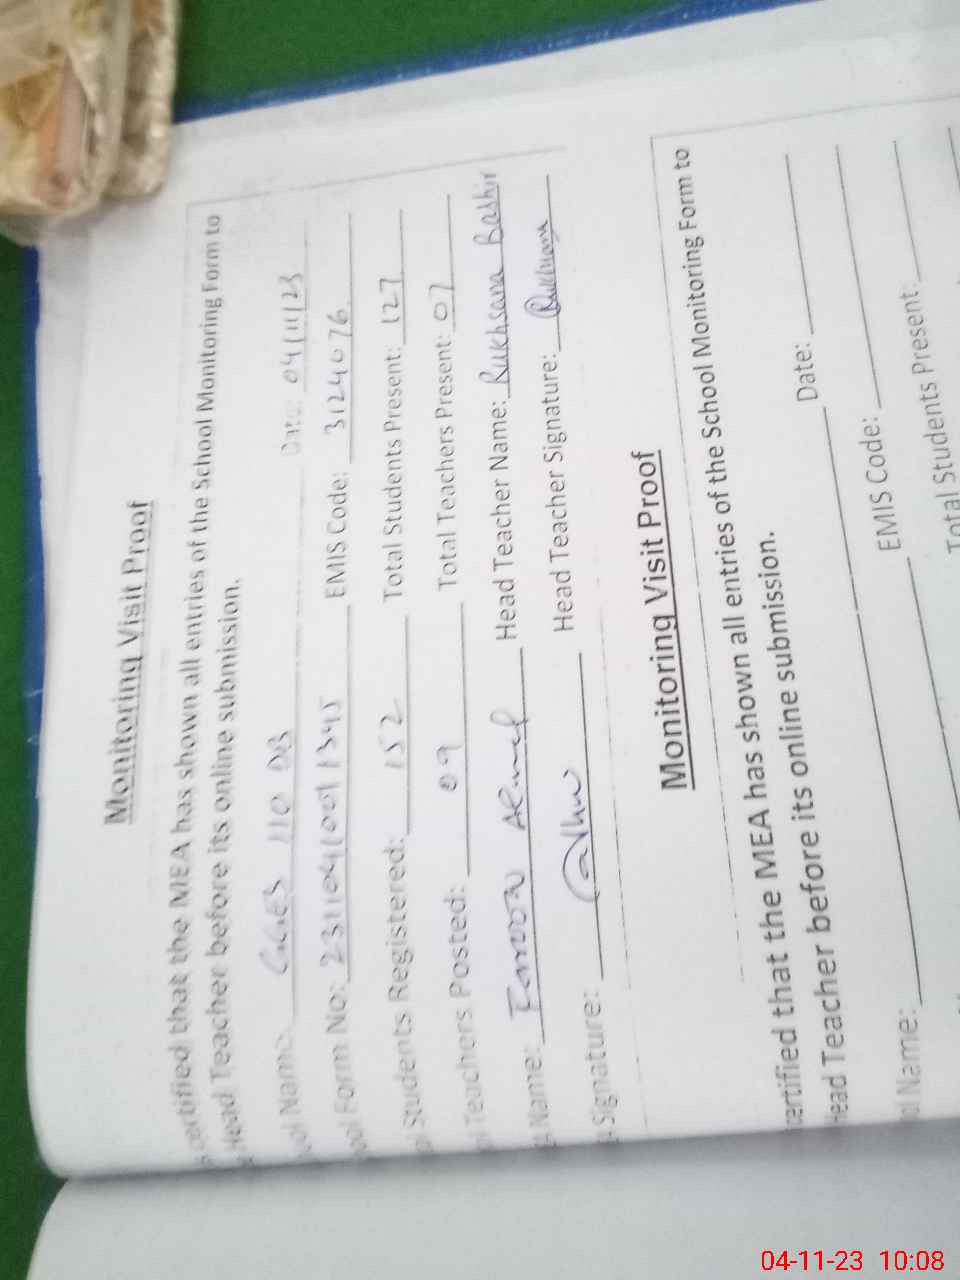 Monitoring Visit Proof
certified that the MEA has shown all entries of the School Monitoring Form to
Head Teacher before its online submission.
ool Name: GGES 110 DB Date: 04/11/23
ool Form No: EMIS Code: 3124076
Students Registered: 152 Total Students Present: 127
Teachers Posted: 09 Total Teachers Present: 07
Name: Head Teacher Name: Rukhsana Bashir
Signature: Head Teacher Signature: Rukhsana
Monitoring Visit Proof
certified that the MEA has shown all entries of the School Monitoring Form to
Head Teacher before its online submission.
Date:
ol Name: EMIS Code:
Total Students Present:
04-11-23 10:08